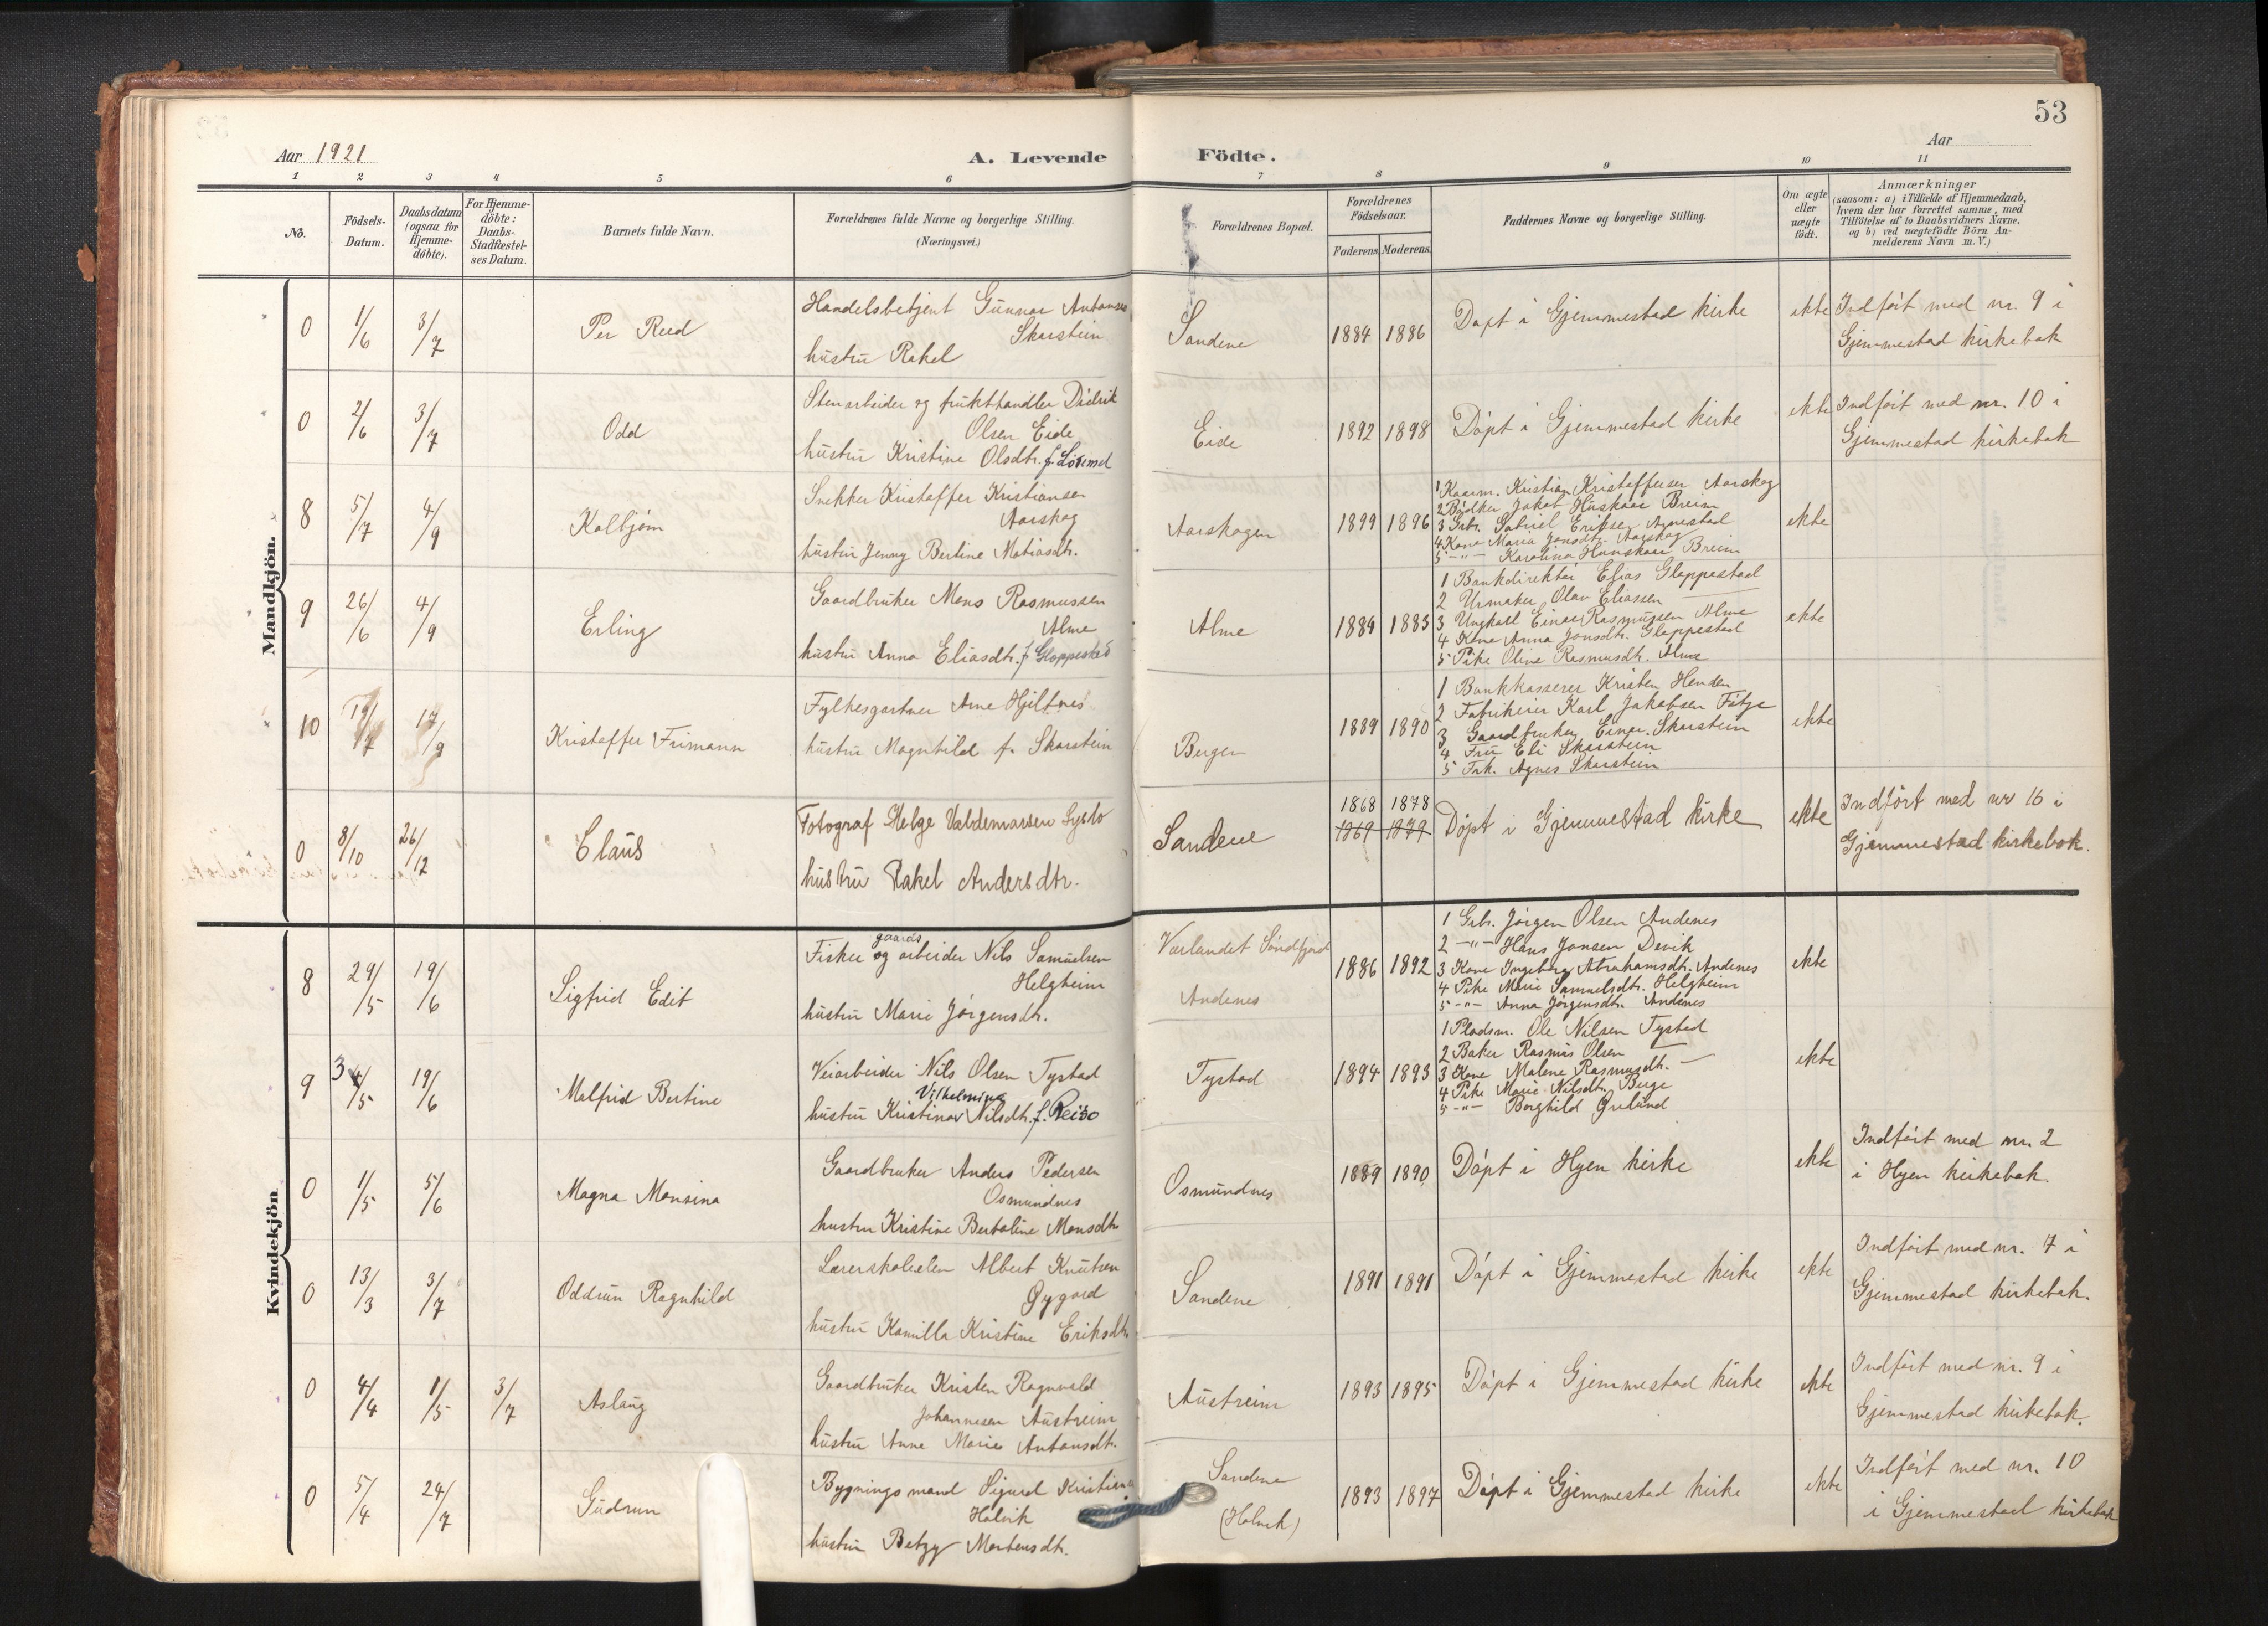 53
Aar 1921
A. Levende
Födte.
Aar
1 2 3 4 5 6 7 8 9 10 11
No.
Födsels-
Datum.
Daabsdatum
(ogsaa for
Hjemme-
döbte).
For Hjemme-
döbte:
Daabs-
Stadfæstel-
ses Datum.
Barnets fulde Navn.
Forældrenes fulde Navne og borgerlige Stilling.
(Næringsvei.)
Forældrenes Bopæl.
Forældrenes
Födselsaar.
Faderens. Moderens.
Faddernes Navne og borgerlige Stilling.
Om ægte
eller
uægte
födt.
Anmærkninger
(saasom: a) i Tilfælde af Hjemmedaab,
hvem der har forrettet samme, med
Tilföielse af to Daabsvidners Navne.
og b) ved uægtefödte Börn An-
melderens Navn m. V.)
Mandkjön.
0 1/6 3/7 Per Reed
Handelsbetjent Gunnar Antonsen
Skarstein
hustru Rakel
Sandene 1884 1886 Døpt i Gjemmestad kirke ekte
Indført med nr. 9 i
Gjemmestad kirkebok
0 2/6 3/7 Odd
Stenarbeider og frukthandler Didrik
Olsen Eide
hustru Kristine Olsdtr. f.
Eide 1892 1898 Døpt i Gjemmestad kirke ekte
Indført med nr. 10 i
Gjemmestad kirkebok
8 5/7 4/9 Kolbjørn
Snekker Kristoffer Kristiansen
Aarskog
hustru Jenny Bertine Matiasdtr.
Aarskogen 1899 1896
1 Kaarm. Kristian Kristoffersen Aarskog
2 Bødker Jakob Huskaar Breim
3 Grbr. Gabriel Eriksen
4 Kone Maria Jonsdtr. Aarskog
5 -"- Karolina Breim
ekte
9 26/6 4/9 Erling
Gaardbruker Mons Rasmussen
Alme
hustru Anna Eliasdtr. f. Gloppestad
Alme 1884 1885
1 Bankdirektør Elias Gloppestad
2 Urmaker Olav Eliassen
3 Ungkarl Einar Rasmussen Alme
4 Kone Anna Jonsdtr. Gloppestad
5 Pike Oline Rasmusdtr. Alme
ekte
10 19/7 17/9 Kristoffer Frimann
Fylkesgartner Arne Hjeltnes
hustru Magnhild f. Skarstein
Bergen 1889 1890
1 Bankkasserer Kristen Henden
2 Fabrikeier Karl Jakobsen Fitje
3 Gaardbruker Einar Skarstein
4 Fru Eli Skarstein
5 Frk. Agnes Skarstein
ekte
0 8/10 26/12 Claus
Fotograf Helge Valdemarsen
hustru Rakel Andersdtr.
Sandene 1868 1878
1869 1879
Døpt i Gjemmestad kirke ekte
Indført med nr 16 i
Gjemmestad kirkebok.
Kvindekjön
8 29/5 19/6 Sigfrid Edit
gaards
Fisker og arbeider Nils Samuelsen
Helgheim
hustru Marie Jørgensdtr.
Værlandet Søndfjord
Andenes
1886 1892
1 Grbr. Jørgen Olsen Andenes
2 -"- Hans Jonsen Devik
3 Kone Ingeborg Abrahamsdtr. Andenes
4 Pike Marie Samuelsdtr. Helgheim
5 -"- Anna Jørgensdtr. Andenes
ekte
9 3/5 19/6 Malfrid Bertine
Veiarbeider Nils Olsen Tystad
Vilhelmina
hustru Kristina Nilsdtr. f. Reiso
Tystad 1894 1893
1 Pladsm. Ole Nilsen Tystad
2 Baker Rasmus Olsen —
3 Kone Malene Rasmusdtr. —
4 Pike Marie Nilsdtr. Berge
5 -"- Borghild Grelund
ekte
0 1/5 5/6 Magna Monsina
Gaardbruker Anders Pedersen
Osmundnes
hustru Kristine Bertoline Monsdtr
Osmundnes 1889 1890 Døpt i Hyen kirke ekte
Indført med nr. 2
i Hyen kirkebok.
0 13/3 3/7 Oddrun Ragnhild
Lærerskoleelev Albert Knutsen
Øygard
hustru Kamilla Kristine Eriksdtr
Sandene 1891 1891 Døpt i Gjemmestad kirke ekte
Indført med nr. 7 i
Gjemmestad kirkebok.
0 4/4 1/5 3/7 Aslaug
Gaardbruker Kristen Ragnvald
Johannesen Austreim
hustru Anne Marie Antonsdtr.
Austreim 1893 1895 Døpt i Gjemmestad kirke ekte
Indført med nr. 9 i
Gjemmestad kirkebok.
0 5/4 24/7 Gudrun
Bygningsmand Sigurd Kristian
Holvik
hustru Betzy Martensdtr.
Sandene
(Holvik)
1893 1897 Døpt i Gjemmestad kirke ekte
Indført med nr. 10
i Gjemmestad kirkebok